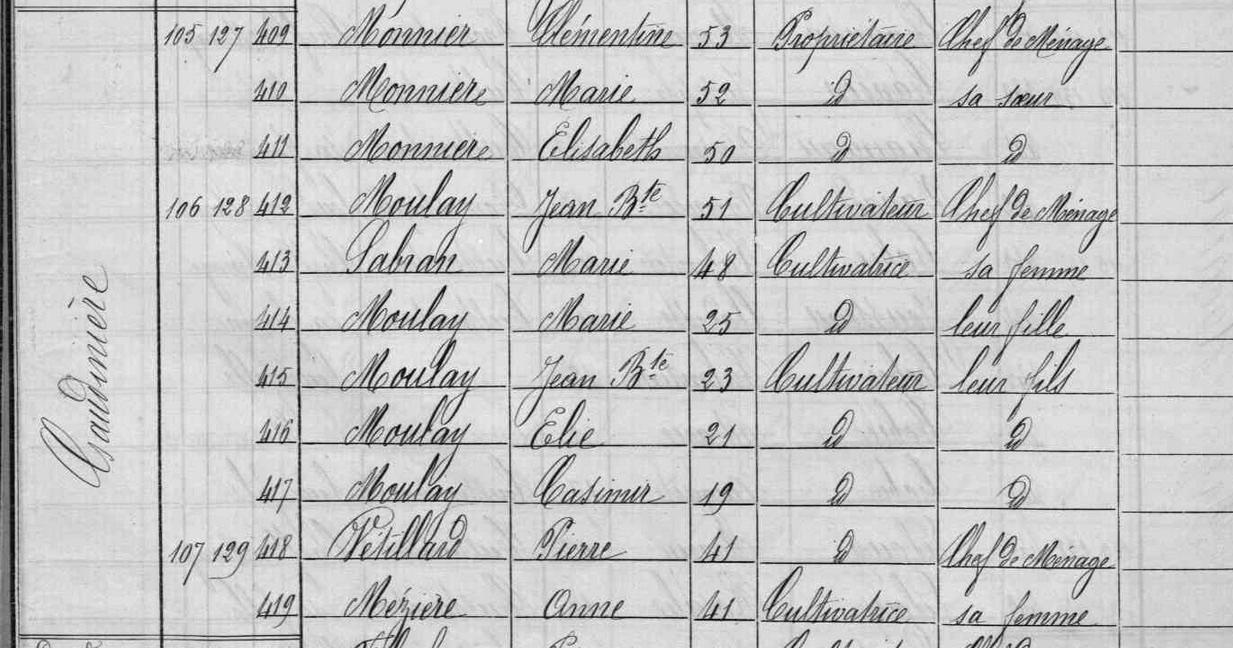 Gaudinière
105 127 409 Monnier Clémentine 53 Propriétaire Chef de Ménage
410 Monnière Marie 52 d sa sœur
411 Monnière Elisabeth 50 d d
106 128 412 Moulay Jean Bte 51 Cultivateur Chef de Ménage
413 Sabran Marie 48 Cultivatrice sa femme
414 Moulay Marie 25 d leur fille
415 Moulay Jean Bte 23 Cultivateur leur fils
416 Moulay Elie 21 d d
417 Moulay Casimir 19 d d
107 129 418 Vétillard Pierre 41 d Chef de Ménage
419 Mézière Anne 41 Cultivatrice sa femme